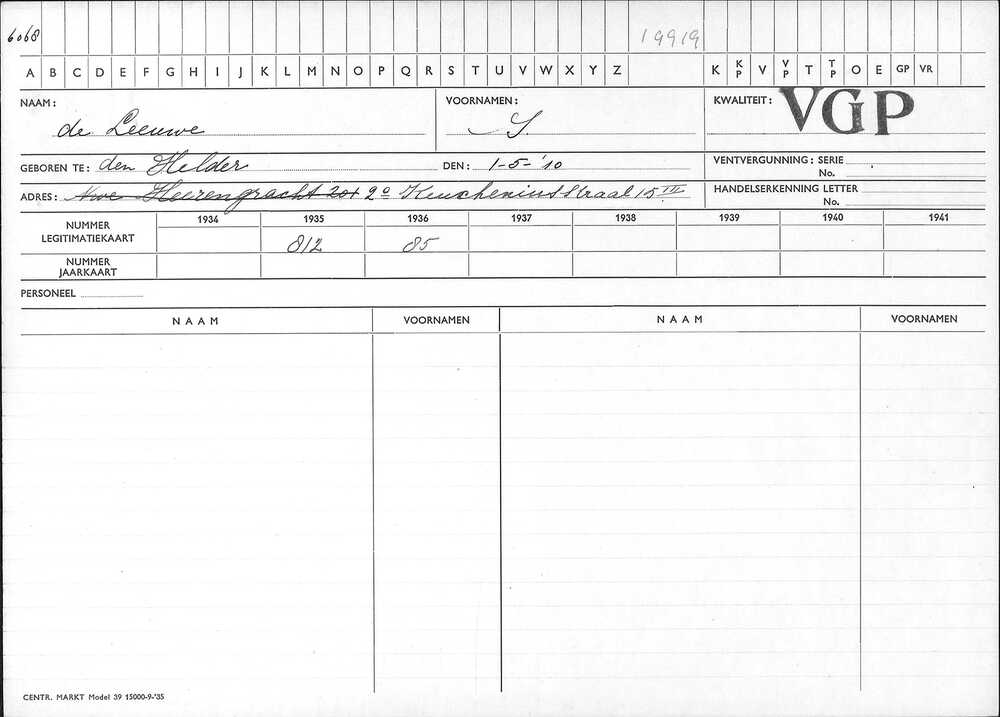 6068 19919
A B C D E F G H I J K L M N O P Q R S T U V W X Y Z K KP V VP T TP O E GP VR
NAAM: de Leeuwe VOORNAMEN: S KWALITEIT: VGP
GEBOREN TE: den Helder DEN: 1-5-'10 VENTVERGUNNING: SERIE
No.
ADRES: Nwe Heerengracht 201 2º Keucheniusstraat 15 III HANDELSERKENNING LETTER
No.
1934 1935 1936 1937 1938 1939 1940 1941
NUMMER LEGITIMATIEKAART 812 85
NUMMER JAARKAART
PERSONEEL
NAAM VOORNAMEN NAAM VOORNAMEN
CENTR. MARKT Model 39 15000-9-'35